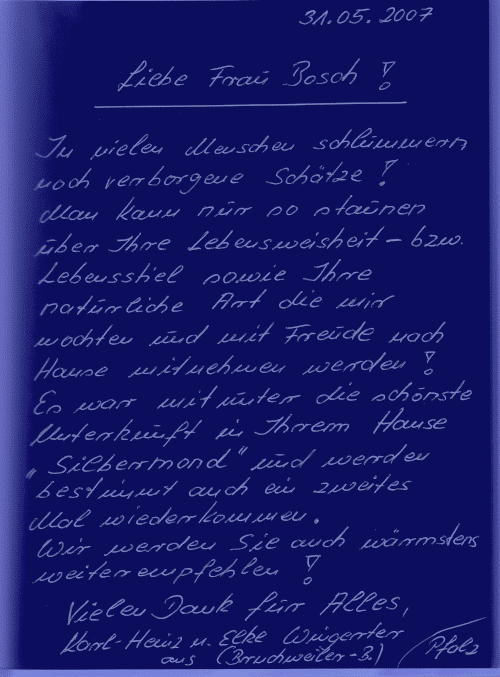 31.05.2007
Liebe Frau Bosch !
In vielen Menschen schlummern
noch verborgene Schätze !
Man kann nur so staunen
über Ihre Lebensweisheit – bzw.
Lebensstiel sowie Ihre
natürliche Art die wir
mochten und mit Freude nach
Hause mitnehmen werden !
Es war mitunter die schönste
Unterkunft in Ihrem Hause
„Silbermond" und werden
bestimmt auch ein zweites
Mal wiederkommen.
Wir werden Sie auch wärmstens
weiterempfehlen !
Vielen Dank für Alles,
Karl-Heinz u. Elke Wingerter
aus (Bruchweiler-B.) Pfalz